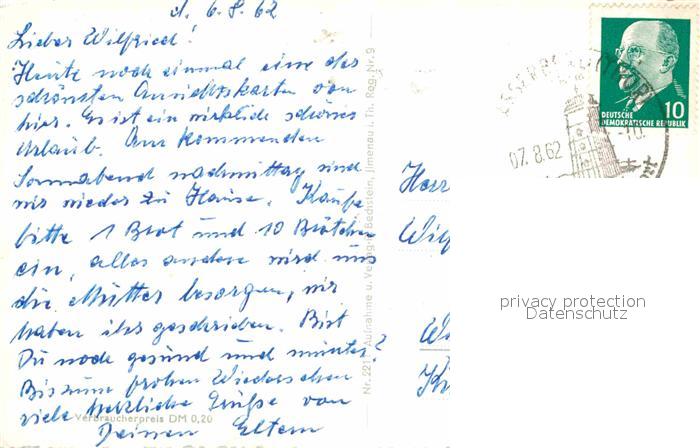 d. 6.8.62
Lieber Wilfried!
Heute noch einmal eine der
schönsten Ansichtskarten von
hier. Es ist ein wirklich schöner
Urlaub. Am kommenden
Sonnabend nachmittag sind
wir wieder zu Hause. Kaufe
bitte 1 Brot und 10 Brötchen
ein, alles andere wird uns
die Mutter besorgen, wir
haben ihr geschrieben. Bist
Du noch gesund und munter?
Bis zum frohen Wiedersehen
viele herzliche Grüße von
Deinen Eltern
Verbraucherpreis DM 0,20
Nr. 221 Aufnahme u. Verlag: Bechstein, Jlmenau i. Th. Reg. Nr. 9
07.8.62
10
DEUTSCHE
DEMOKRATISCHE REPUBLIK
Herr
Wilf
privacy protection
Datenschutz